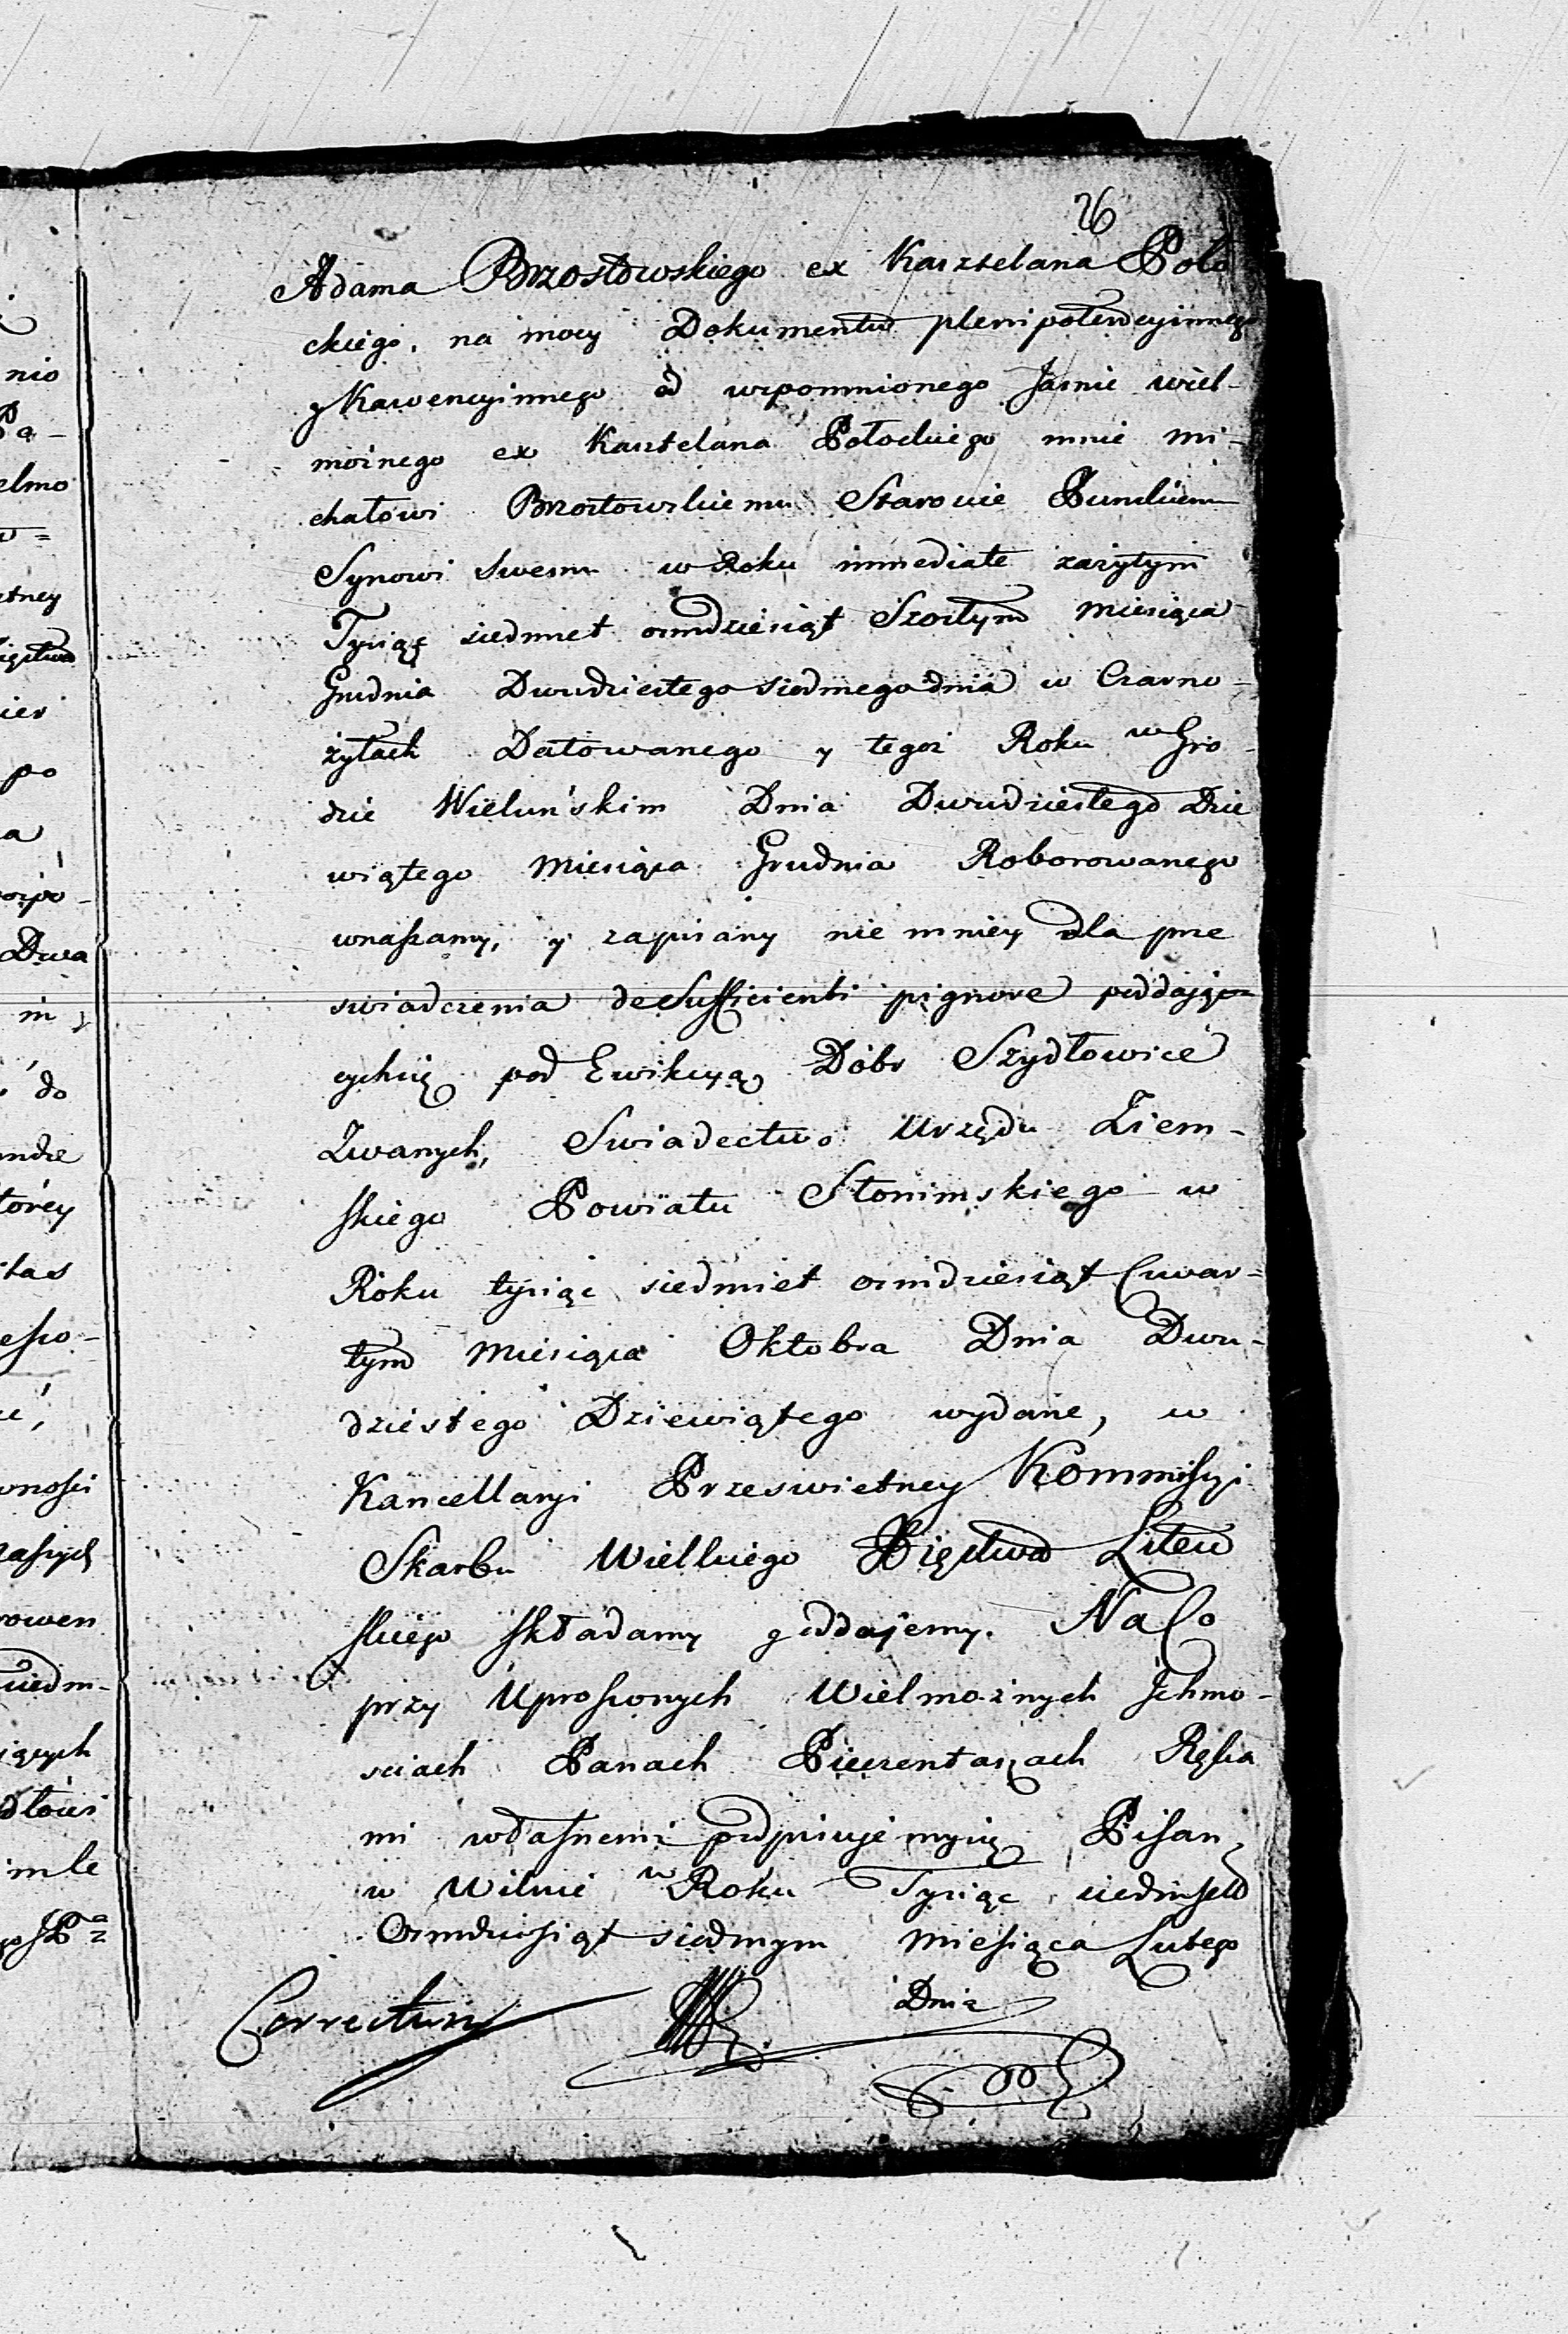 26
Adama Brzostowskiego ex Kasztelana Poło
ckiego, na mocy Dokumentu plenipotencyinnego
y Kawencyinnego od wspomnionego Jasnie wiel-
możnego ex Kasztelana Połockiego mnie mi-
chałowi Brzostowskiemu Staroscie Puńskiemu
Synowi swemu w Roku immediate zaszłym
Tysiąc siedmset osmdziesiąt Szostym Miesiąca
Grudnia Dwudziestego siodmego dnia w Czarno-
żyłach Datowanego y tegoż Roku w Gro-
dzie Wieluńskim Dnia Dwudziestego Dzie
wiątego Miesiąca Grudnia Roborowanego
wnaszamy, y zapisany nie mniey dla prze
swiadczenia de Sufficienti pignore poddają
cychsię pod Ewikcyą Dobr Szydłowice
Zwanych, Swiadectwo Urzędu Ziem-
skiego Powiatu Słonimskiego w
Roku tysiąc siedmset osmdziesiąt Czwar-
tym Miesiąca Oktobra Dnia Dwu-
dziestego Dziewiątego wydane, w
Kancellaryi Przeswietney Kommissyi
Skarbu Wielkiego Xięstwa Litew
skiego składamy y oddajemy. Na Co
przy Uproszonych Wielmożnych Ichmo-
sciach Panach Pieczentarzach Ręka
mi własnemi podpisujemysię Pisan
w Wilnie w Roku Tysiąc siedmset
Osmdziesiąt siodmym Miesiąca Lutego
Dnia
Correctum
nio
Pa-
elmo
etney
po
a
Dwa
do
torey
tas
wnosci
naszych
rowen
siedm-
imle